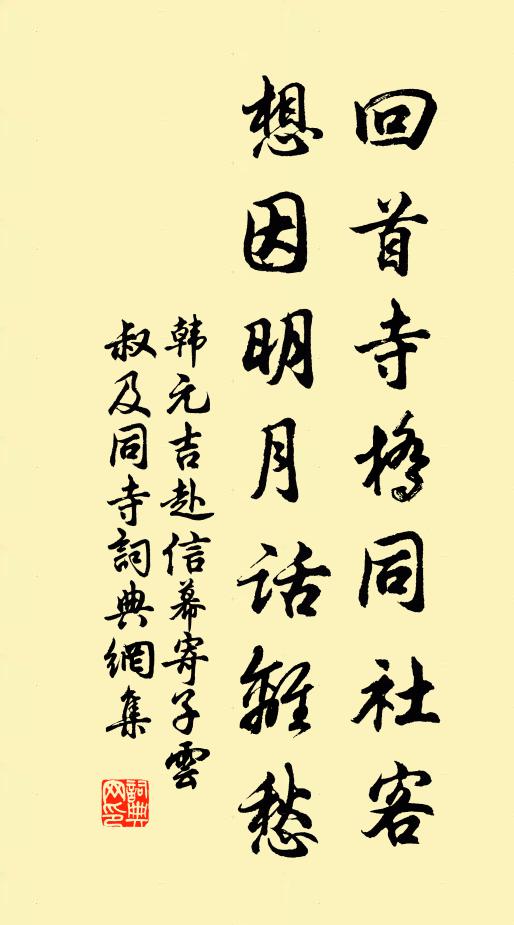 回首寺橋同社客
想因明月話離愁
韩元吉赴信幕寄子雲
叔及同寺詞典網集
詞典
网印